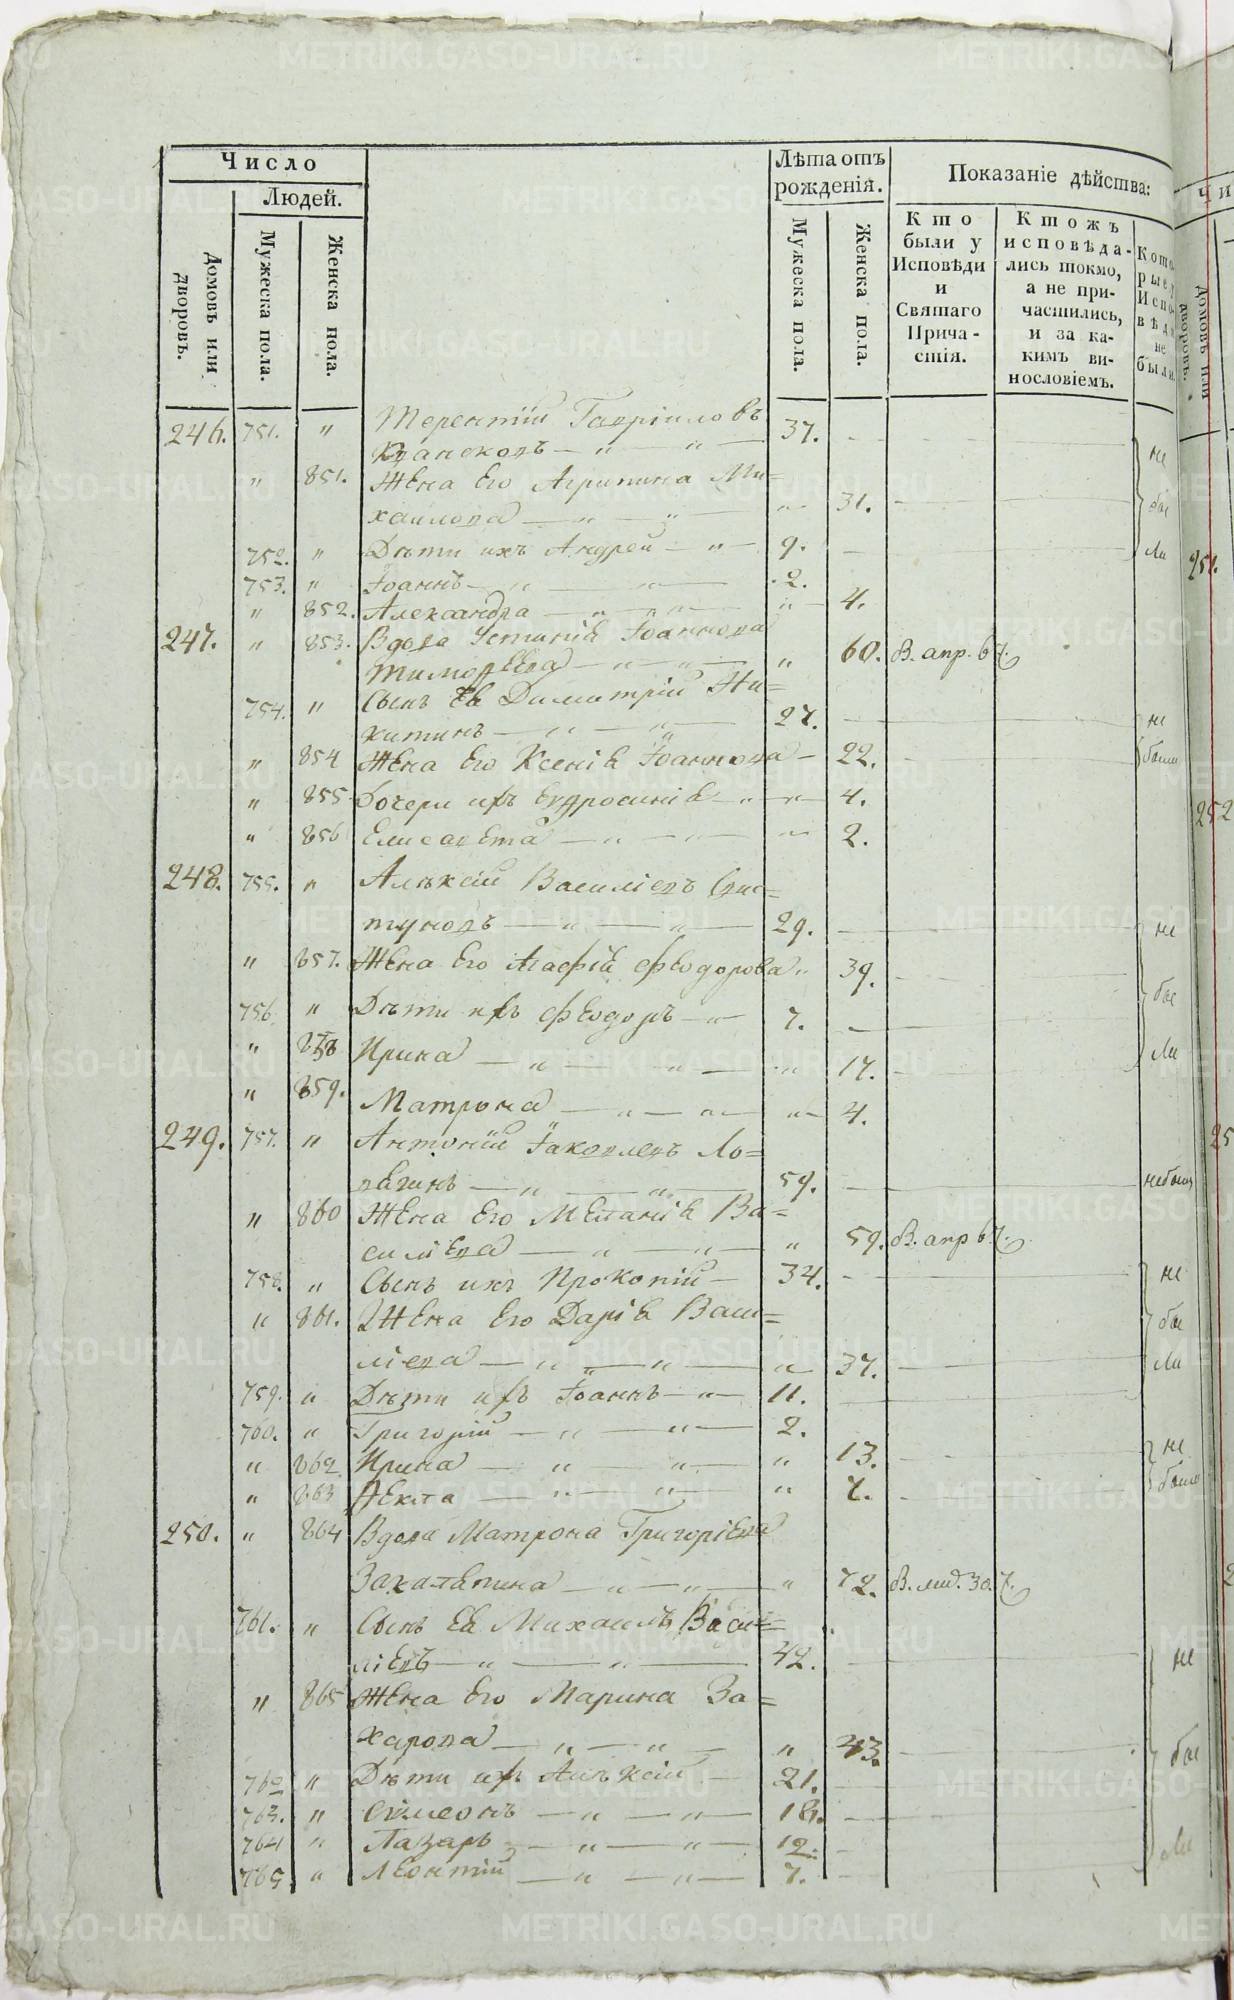 Число
Людей.
Домовъ или дворовъ.
Мужеска пола.
Женска пола.
Лѣта отъ рожденія.
Мужеска пола.
Женска пола.
Показаніе дѣйства:
Кто были у Исповѣди и Святаго Причастія.
Ктожъ исповѣдались токмо, а не причастились, и за какимъ винословіемъ.
Которые у Исповѣди не были.
246. 751. " Терентій Гавріиловъ
— " — " — 37. не
" 851. Жена Его Агрипина Ми=
хаилова — " — " — " 31. бы
752. " Дѣти ихъ Андрей — " — 9. ли
753. " Іоаннъ — " — " — 2.
" 852. Александра — " — " — " 4.
247. " 853. Вдова Устинія Іоаннова
Тимофеева — " — " — " 60. В. апр. 6 ч.
754. " Сынъ Ея Димитрій Ни=
китинъ — " — " — 27. не
" 854 Жена Его Ксенія Іоаннова — 22. были
" 855 Дочери ихъ Евфросинія — " — " 4.
" 856 Елисавета — " — " — " 2.
248. 755. " Алексій Василіевъ Сви=
стуновъ — " — " — 29. не
" 857. Жена Его Агафія Феодорова " 39.
756. " Дѣти ихъ Феодоръ — " — 7. бы
" 858 Ирина — " — " — " 17. ли
" 859. Матрона — " — " — " 4.
249. 757. " Антоній Іаковлевъ Ло=
— " — " — 59. небыли
" 860 Жена Его Меланія Ва=
силіева — " — " — " 59. В. апр 6 ч.
758. " Сынъ ихъ Прокопій — 34. не
" 861. Жена Его Дарія Васи=
ліева — " — " — " 37. бы ли
759. " Дѣти ихъ Іоаннъ — " — 11.
760. " Григорій — " — " — 2.
" 862 Ирина — " — " — " 13. не
" 863 Фекла — " — " — " 7. были
250. " 864 Вдова Матрона Григоріева
— " — " — " 72. В. 30. ч.
761. " Сынъ Ея Михаилъ Васи=
ліевъ — " — " — 42. не
" 865 Жена Его Марина За=
харова — " — " — " 43. бы
762 " Дѣти ихъ Алексій — 21.
763. " Симеонъ — " — " — 18.
764 " Лазарь — " — " — 12. ли
765 " Леонтій — " — " — 7.
251.
252
METRIKI.GASO-URAL.RU